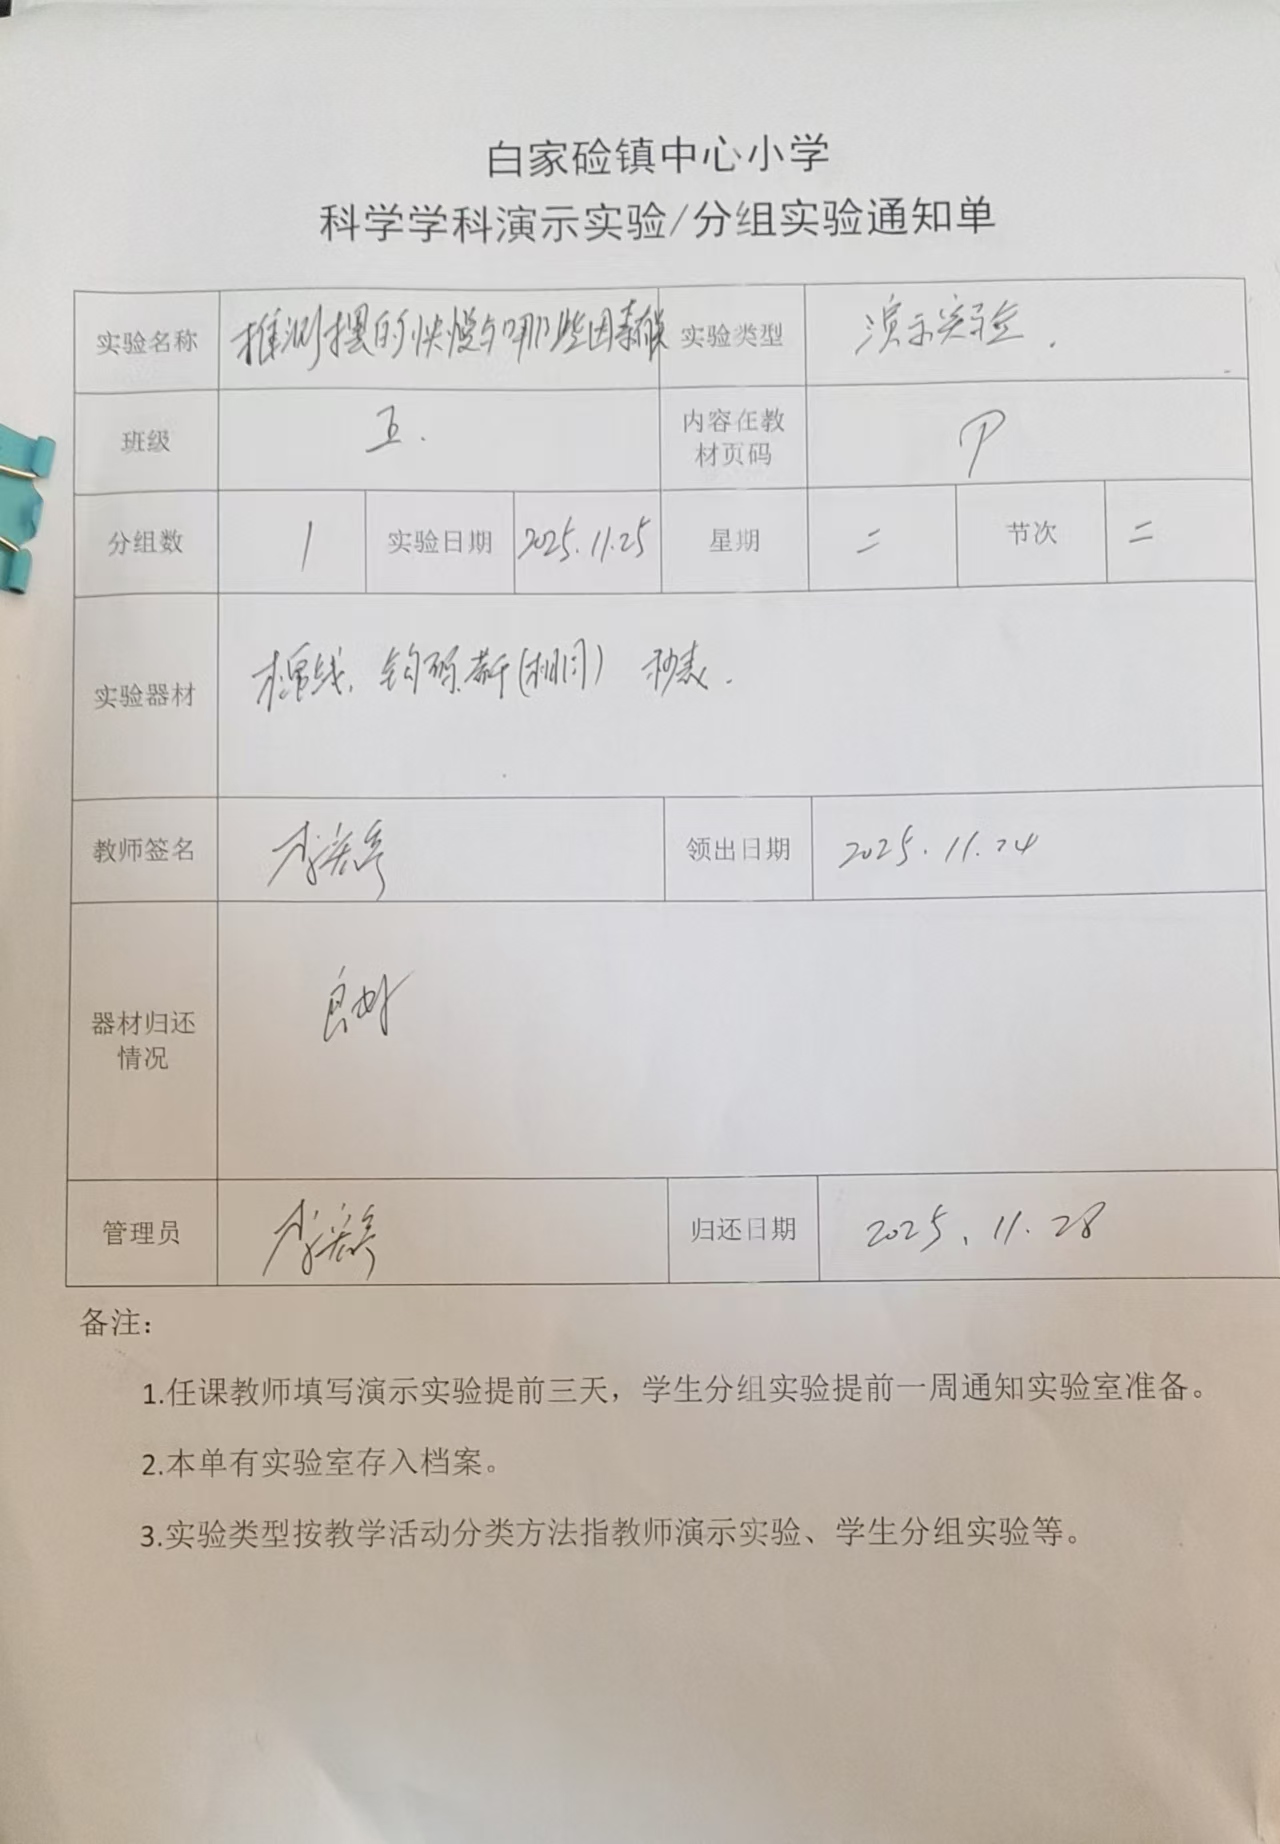 白家硷镇中心小学
科学学科演示实验/分组实验通知单
实验名称 推测摆的快慢与哪些因素有关 实验类型 演示实验.
班级 五. 内容在教材页码 P
分组数 1 实验日期 2025.11.25 星期 二 节次 二
实验器材 棉线、钩码若干(相同) 秒表.
教师签名 领出日期 2025.11.24
器材归还情况 良好
管理员 归还日期 2025.11.28
备注:
1.任课教师填写演示实验提前三天，学生分组实验提前一周通知实验室准备。
2.本单有实验室存入档案。
3.实验类型按教学活动分类方法指教师演示实验、学生分组实验等。